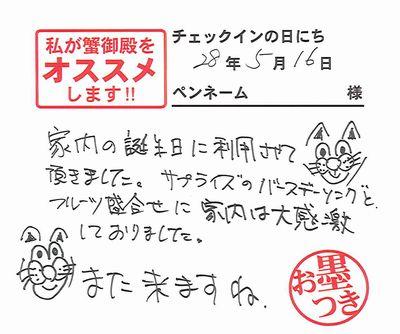 私が蟹御殿を
オススメ
します!!
チェックインの日にち
28年5月16日
ペンネーム 様
家内の誕生日に利用させて
頂きました。サプライズのバースデーソングと、
フルーツ盛合せに家内は大感激
しておりました。
また来ますね.
お墨つき